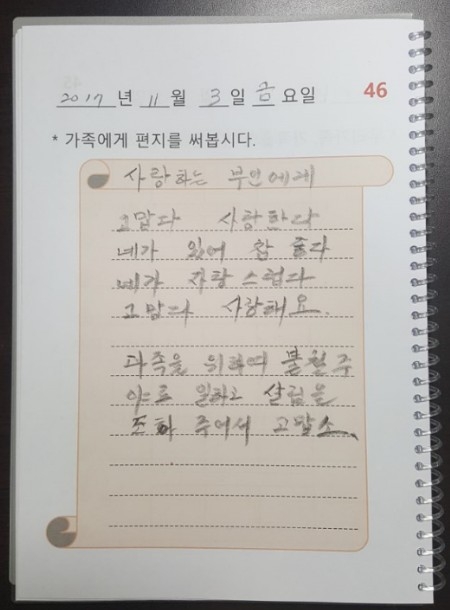 2017 년 11 월 3 일 금 요일
46
* 가족에게 편지를 써봅시다.
사랑하는 부인에게
고맙다 사랑한다
네가 있어 참 좋다
네가 자랑 스럽다
고맙다 사랑해요.
가족을 위하여 불철주
야로 일하고 살림을
조화 주어서 고맙소.